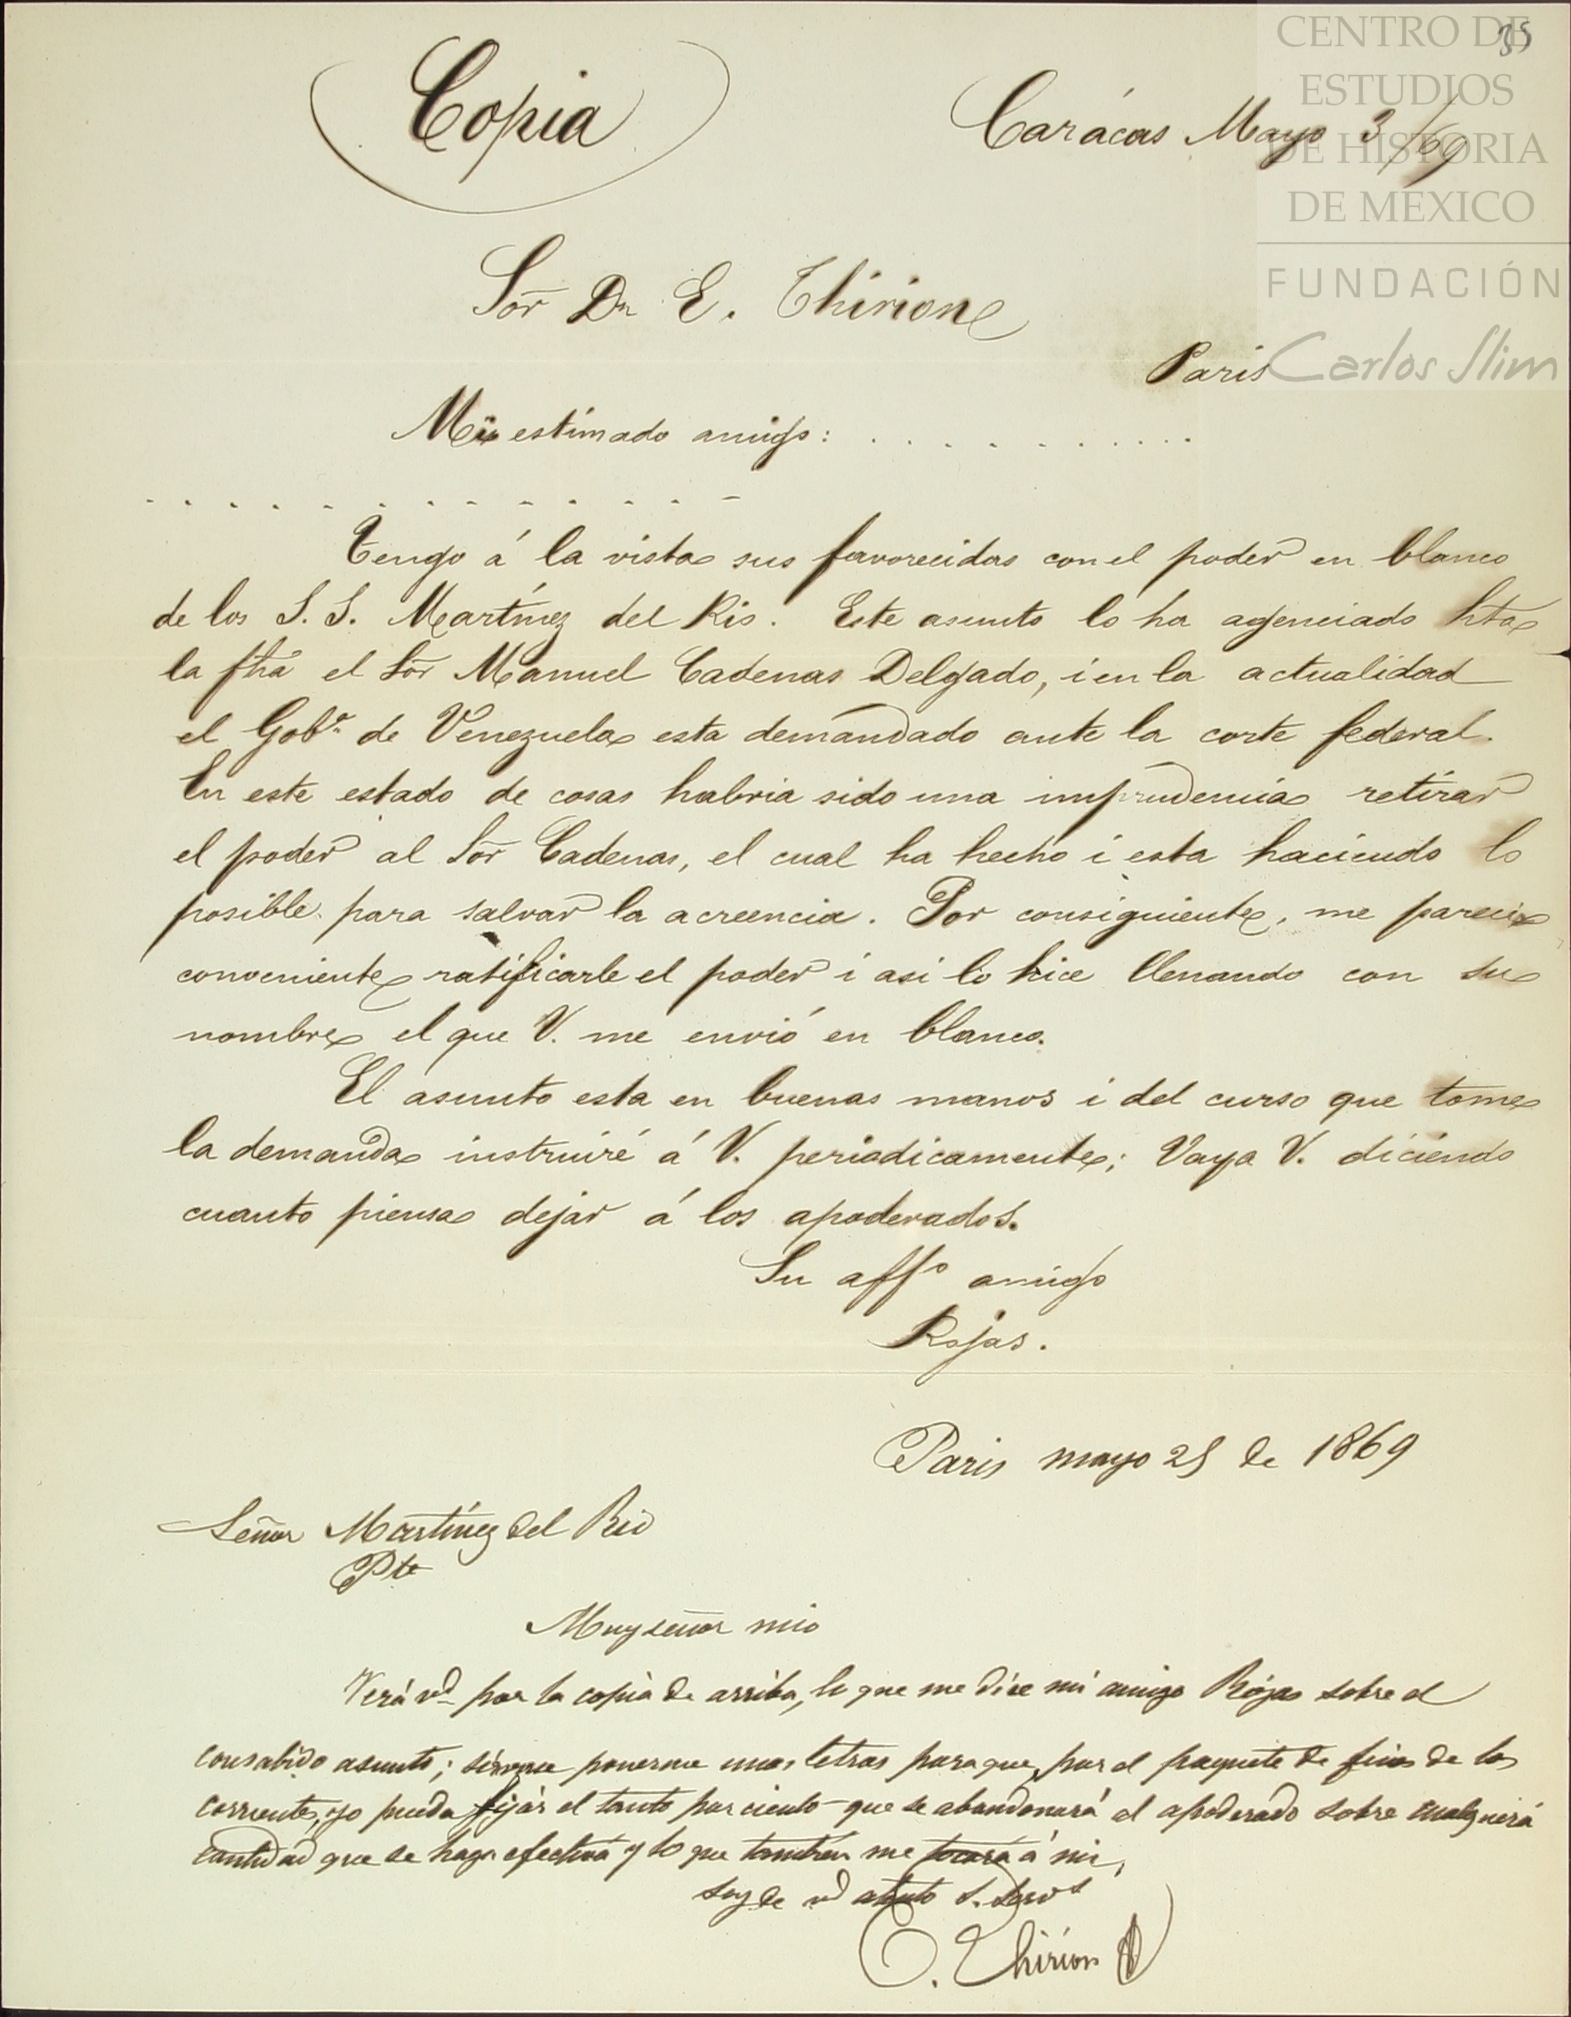 35
CENTRO DE
ESTUDIOS
DE HISTORIA
DE MÉXICO
FUNDACIÓN
Carlos Slim
Copia
Carácas Mayo 3/69
Sor Dn E. Thirion
Paris
Mi estimado amigo: . . . . . . . . . .
. . . . . . . . . . . . .
Tengo á la vista sus favorecidas con el poder en blanco
de los S. S. Martínez del Rio. Este asunto lo ha agenciado hta
la fha el Sor Manuel Cadenas Delgado, i en la actualidad
el Gobo. de Venezuela esta demandado ante la corte federal.
En este estado de cosas habria sido una imprudencia retirar
el poder al Sor Cadenas, el cual ha hecho i esta haciendo lo
posible para salvar la acreencia. Por consiguiente, me parecio
conveniente ratificarle el poder i asi lo hice llenando con su
nombre el que V. me envió en blanco.
El asunto esta en buenas manos i del curso que tome
la demanda instruiré á V. periodicamente; Vaya V. diciendo
cuanto piensa dejar á los apoderados.
Su affo amigo
Rojas.
Paris mayo 25 de 1869
Señor Martínez del Rio
Pte
Muy señor mio
Verá vd por la copia de arriba, lo que me dice mi amigo Rójas sobre el
consabido asunto; sirvase ponerme unas letras para que, por el paquete de fines de los
corrientes, yo pueda fijár el tanto por ciento que se abandonará al apoderado sobre cualquiera
cantidad que se haga efectiva y lo que tambien me tocará á mi,
soy de vd atento S. Servs
E. Thirion